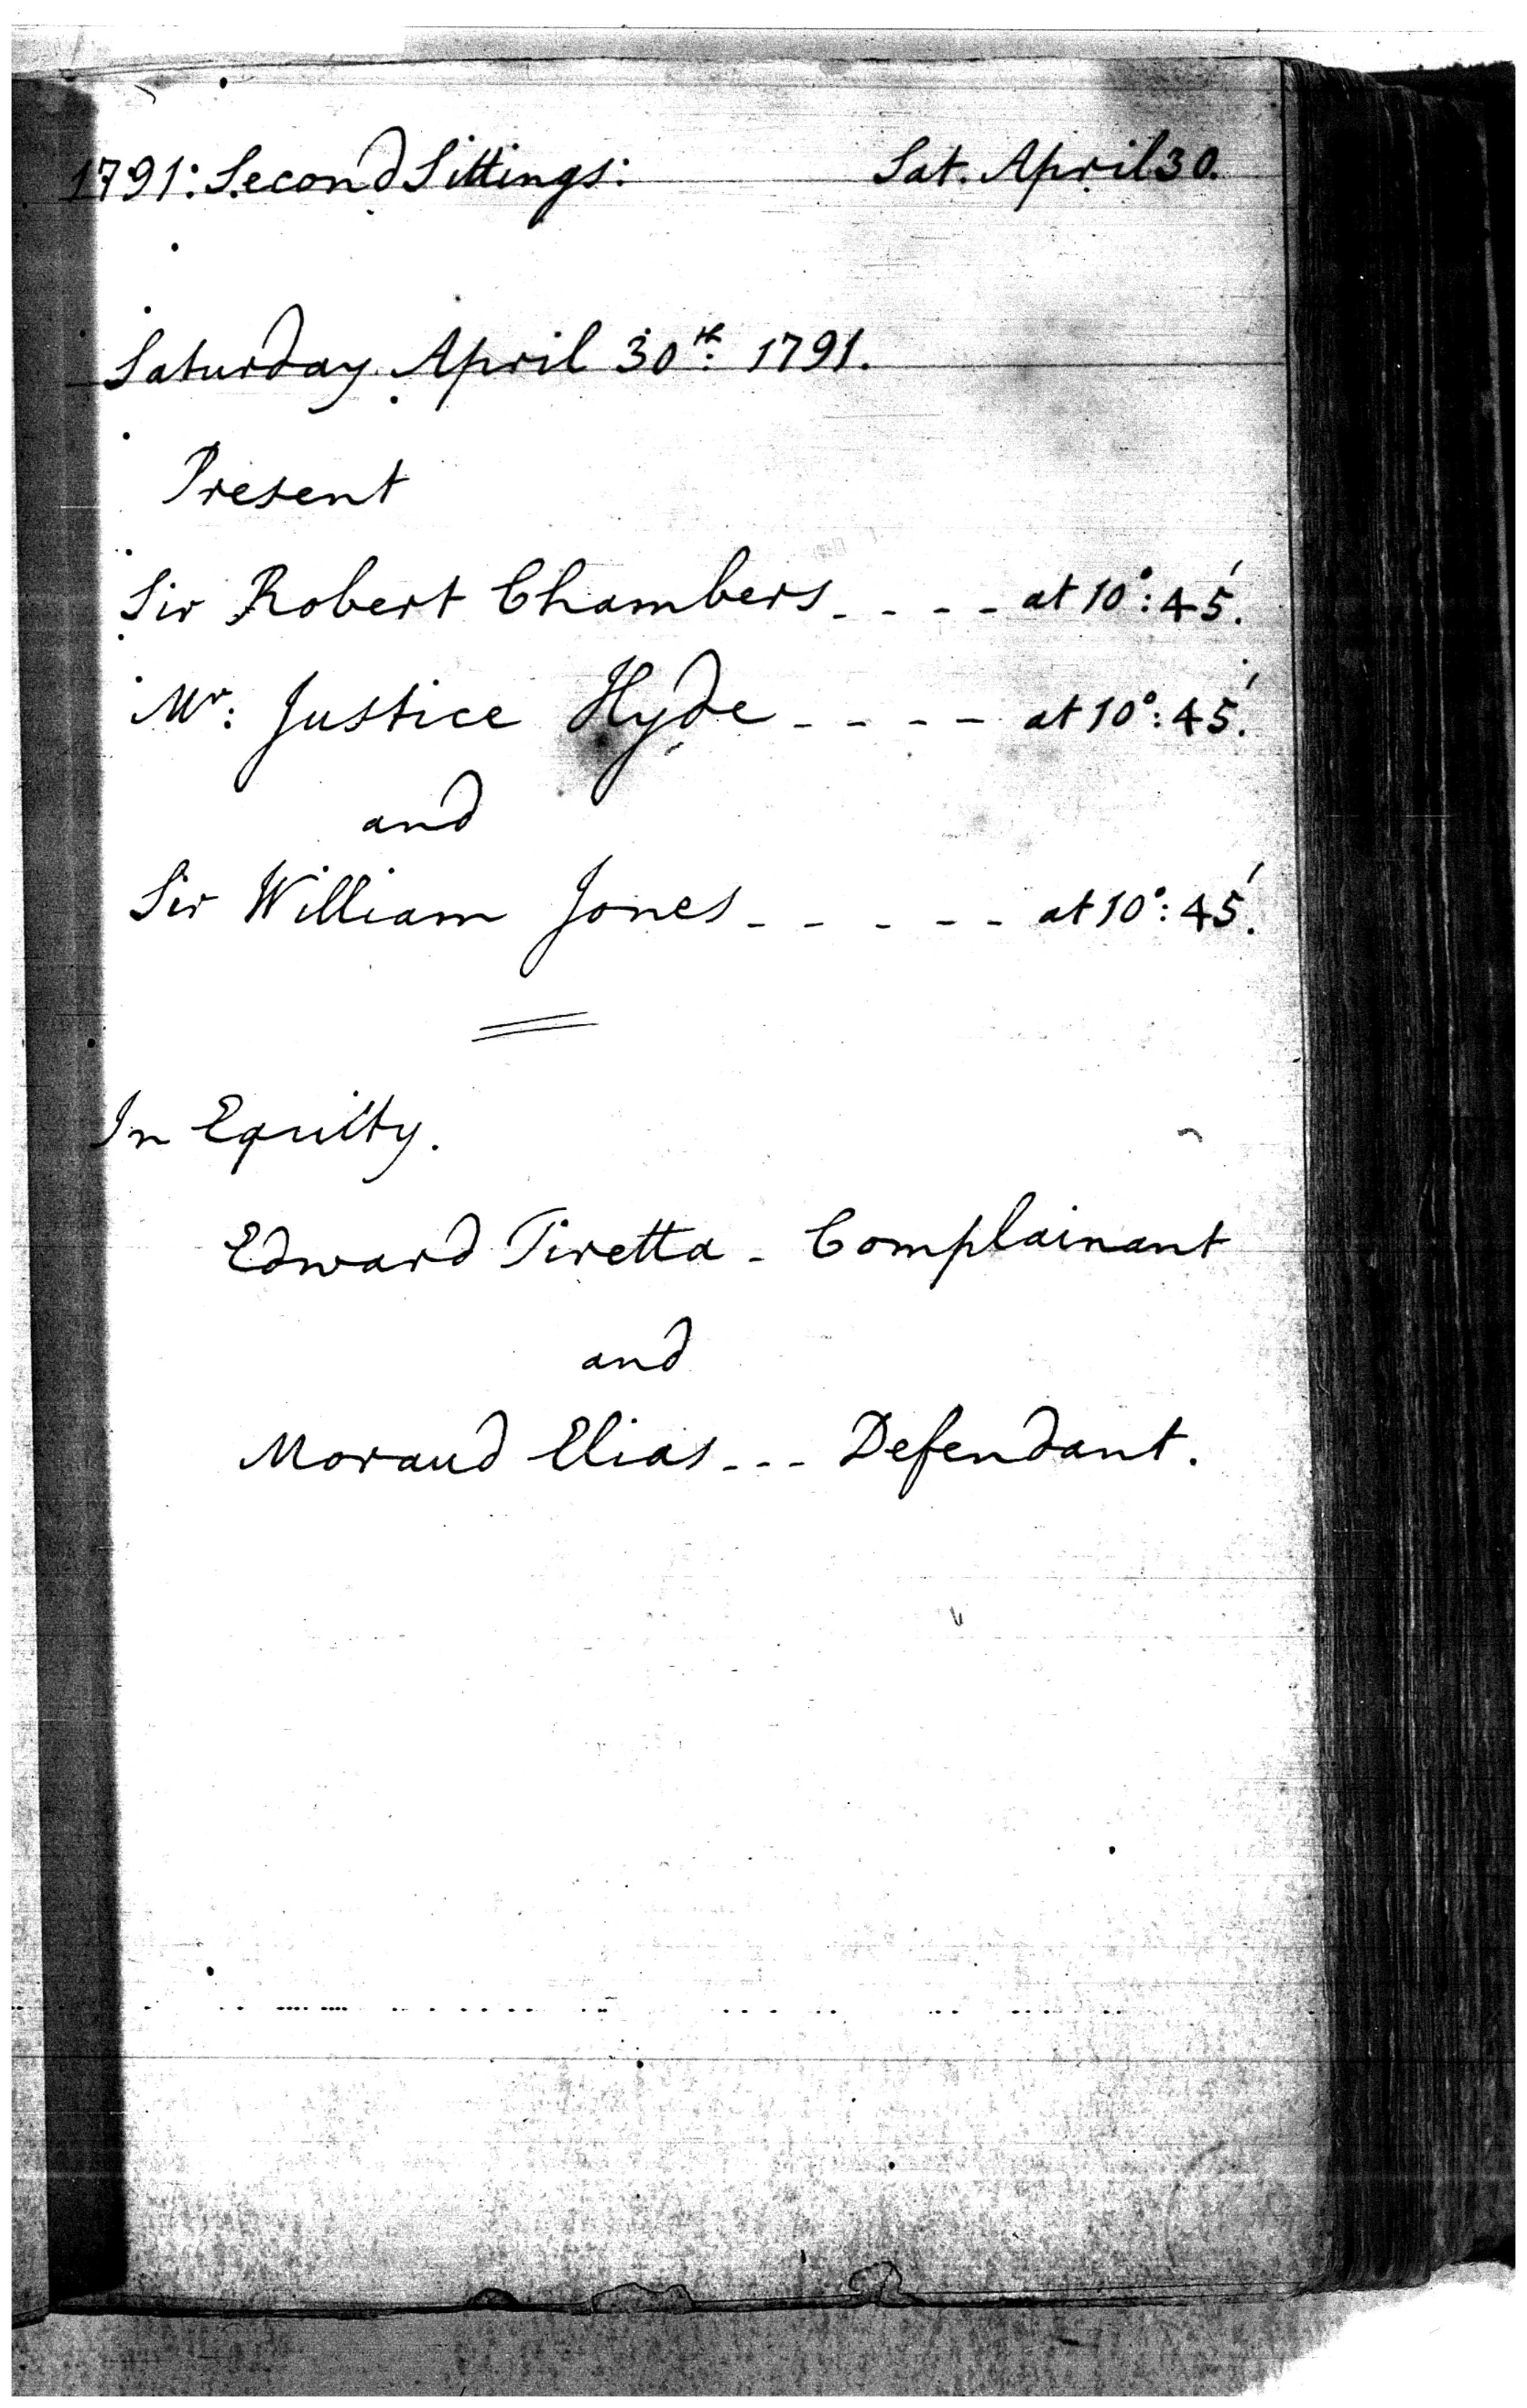 1791: Second Sittings: Sat. April 30.
Saturday April 30th: 1791.
Present
Sir Robert Chambers - - - - at 10°: 45'.
Mr: Justice Hyde - - - - at 10°: 45'.
and
Sir William Jones - - - - - at 10°: 45'.
In Equity.
Edward Tiretta - Complainant
and
Moraud Elias - - - Defendant.